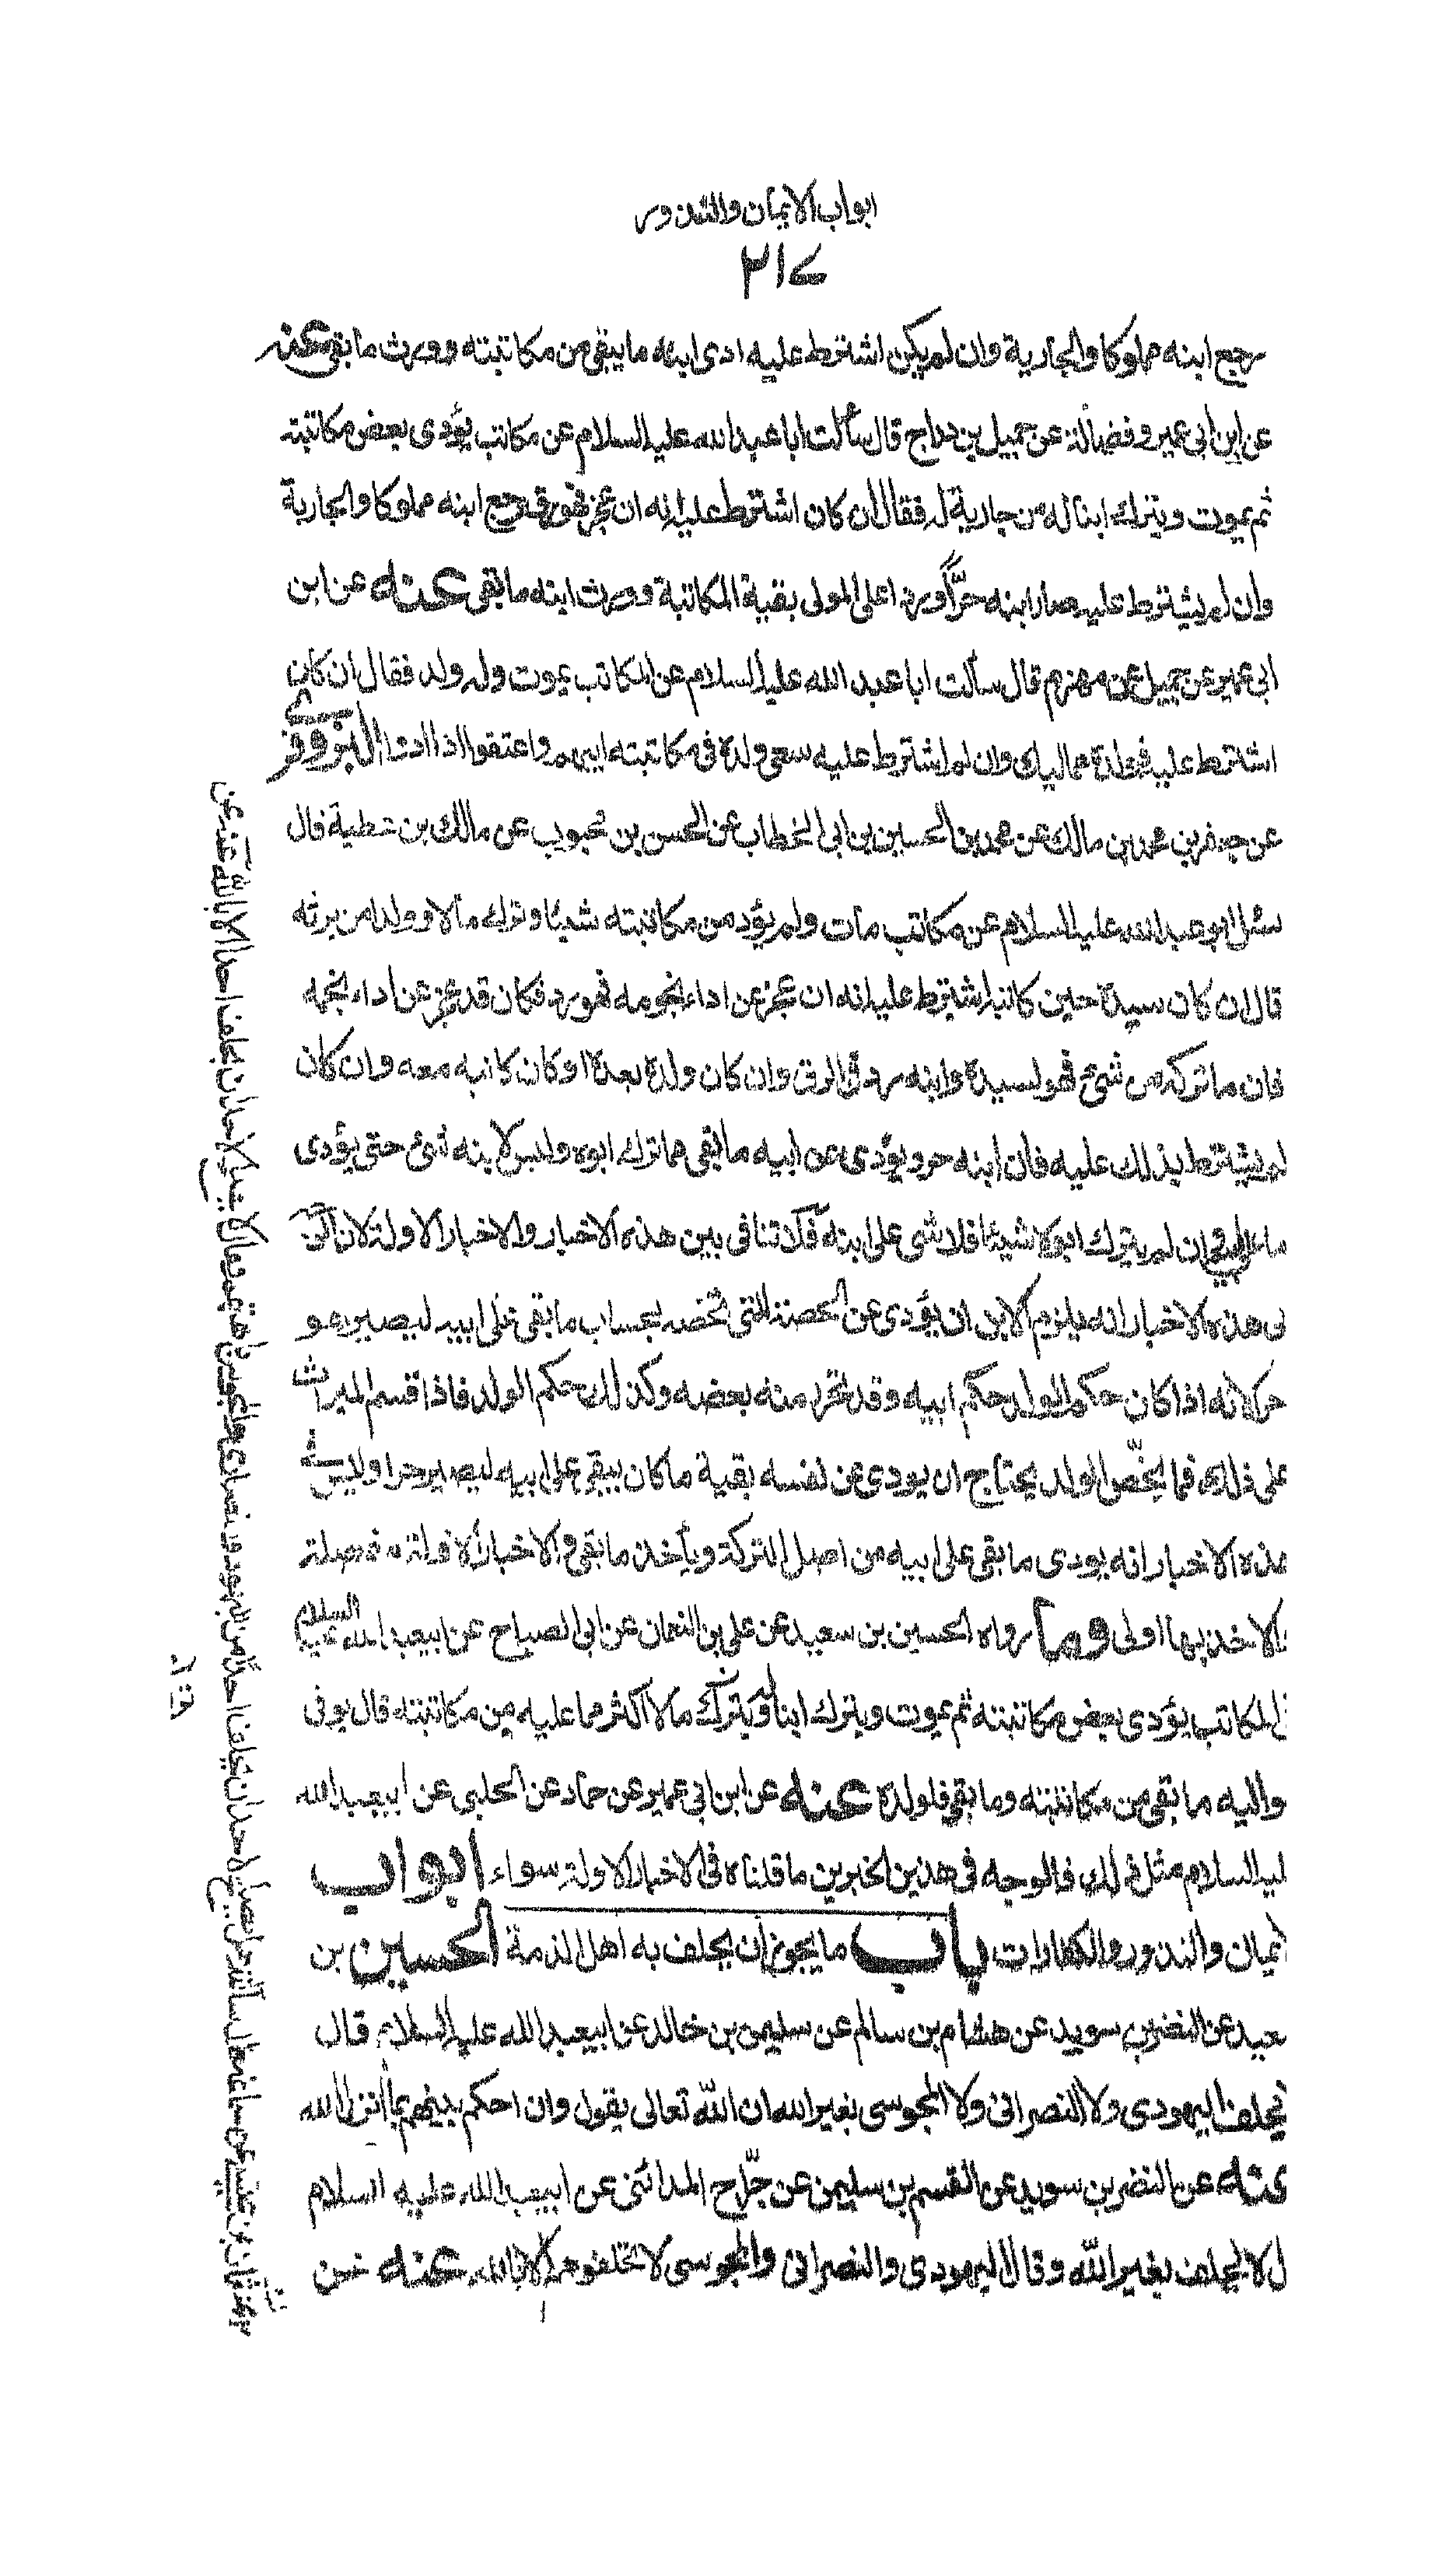 ابواب الايمان والنذور
٢١٧
رجع ابنه مملوكا والجارية وان لم يكن اشترط عليه ادى ابنه ما يبقى من مكاتبته وورث ما بقى عنه
عن ابن ابى عمير وفضالة عن جميل بن دراج قال سألت ابا عبد الله عليه السلام عن مكاتب يؤدى بعض مكاتبته
ثم يموت ويترك ابنا له من جارية له فقال ان كان اشترط عليه انه ان عجز فهو رق رجع ابنه مملوكا والجارية
وان لم يشترط عليه صار ابنه حرّاً ورد على المولى بقية المكاتبة وورث ابنه ما بقى عنه عن ابن
ابى عمير عن جميل عن مهزم قال سألت ابا عبد الله عليه السلام عن المكاتب يموت وله ولد فقال ان كان
اشترط عليه فولده مماليك وان لم اشترط عليه سعى ولده فى مكاتبته ابيهم واعتقوا اذا ادوا البزوفرى
عن جعفر بن محمد بن مالك عن محمد بن الحسين بن ابى الخطاب عن الحسن بن محبوب عن مالك بن عطية قال
سئل ابو عبد الله عليه السلام عن مكاتب مات ولم يؤد من مكاتبته شيئا وترك مالا وولدا من يرثه
قال ان كان سيده حين كاتبه اشترط عليه انه ان عجز عن اداء نجومه فهو رد فكان قد عجز عن اداء نجمه
فان ما تركه من شئ فهو لسيده وابنه رد فى الرق وان كان ولده بعده او كان كاتبه معه وان كان
لم يشترط بذلك عليه فان ابنه حر ويؤدى عن ابيه ما بقى مما ترك ابوه وليس لابنه شئ حتى يؤدى
ما عليه وان لم يترك ابوه شيئا فلا شى على ابنه فلا تنافى بين هذه الاخبار والاخبار الاولة لان الذى
فى هذه الاخبار انه يلزم الابن ان يؤدى عن الحصة التى تخصه بحساب ما بقى على ابيه ليصير هو
حر لانه اذا كان حكم الولد حكم ابيه وقد تحرر منه بعضه وكذلك حكم الولد فاذا قسم الميراث
على ذلك فما يخصّ الولد يحتاج ان يودى عن نفسه بقية ما كان يبقى على ابيه ليصير حرا وليس فى
هذه الاخبار انه يودى ما بقى على ابيه من اصل التركة ويأخذ ما بقى والاخبار الاولة مفصلة
والاخذ بها اولى وما رواه الحسين بن سعيد عن على بن النعمان عن ابى الصباح عن ابيعبد الله عليه السلام
فى المكاتب يؤدى بعض مكاتبته ثم يموت ويترك ابنا ويترك مالا اكثر مما عليه من مكاتبته قال يوفى
واليه ما بقى من مكاتبته وما بقى فلولده عنه عن ابن ابى عمير عن حماد عن الحلبى عن ابيعبد الله
ليه السلام مثل ذلك فالوجه فى هذين الخبرين ما قلناه فى الاخبار الاولة سواء ابواب
الايمان والنذور والكفارات باب ما يجوز ان يحلف به اهل الذمة الحسين بن
سعيد عن النضر بن سويد عن هشام بن سالم عن سليمن بن خالد عن ابيعبد الله عليه السلام قال
لا يحلف اليهودى ولا النصرانى ولا المجوسى بغير الله ان اللّه تعالى يقول وان احكم بينهم بما انزل الله
عنه عن النضر بن سويد عن القسم بن سليمن عن جرّاح المدائنى عن ابيعبد الله عليه السلام
ل لا يحلف بغير اللّه وقال اليهودى والنصرانى والمجوسى لا تحلفوهم الا بالله عنه عن